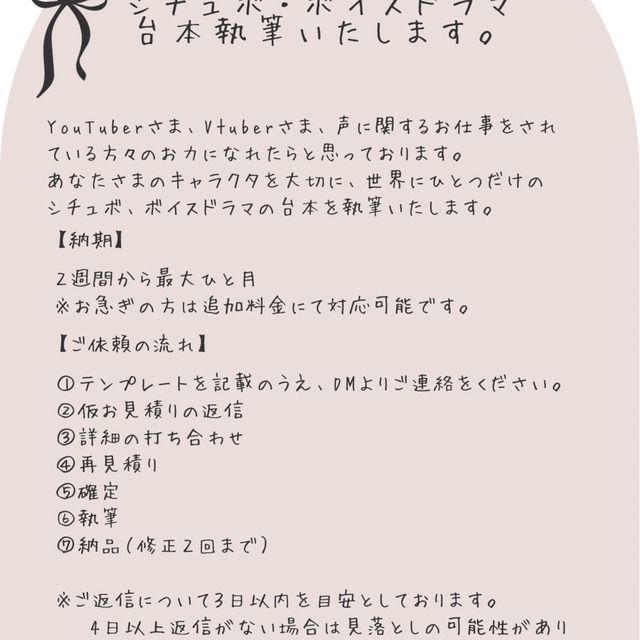 シチュボ・ボイスドラマ
台本執筆いたします。
YouTuberさま、Vtuberさま、声に関するお仕事をされ
ている方々のお力になれたらと思っております。
あなたさまのキャラクタを大切に、世界にひとつだけの
シチュボ、ボイスドラマの台本を執筆いたします。
【納期】
2週間から最大ひと月
※お急ぎの方は追加料金にて対応可能です。
【ご依頼の流れ】
①テンプレートを記載のうえ、DMよりご連絡をください。
②仮お見積りの返信
③詳細の打ち合わせ
④再見積り
⑤確定
⑥執筆
⑦納品(修正2回まで)
※ご返信について3日以内を目安としております。
4日以上返信がない場合は見落としの可能性があり